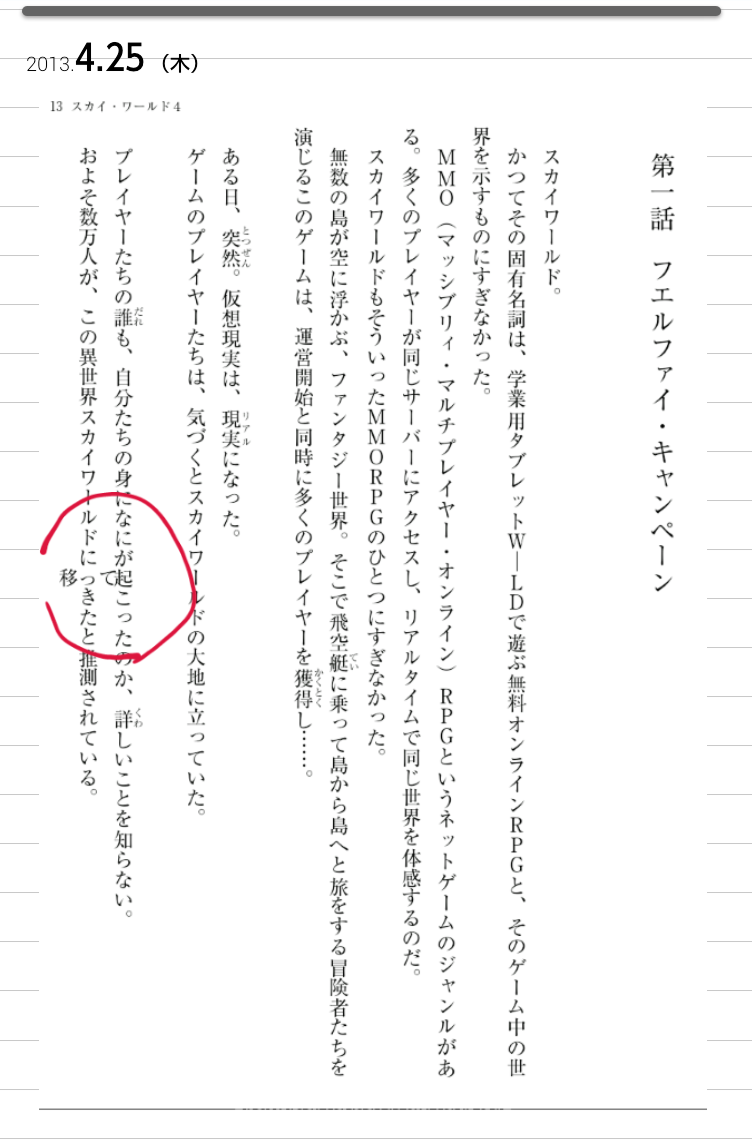 2013.4.25（木）
13 スカイ・ワールド4
第一話　フエルファイ・キャンペーン
スカイワールド。
かつてその固有名詞は、学業用タブレットW―LDで遊ぶ無料オンラインRPGと、そのゲーム中の世
界を示すものにすぎなかった。
MMO（マッシブリィ・マルチプレイヤー・オンライン）RPGというネットゲームのジャンルがあ
る。多くのプレイヤーが同じサーバーにアクセスし、リアルタイムで同じ世界を体感するのだ。
スカイワールドもそういったMMORPGのひとつにすぎなかった。
てい
無数の島が空に浮かぶ、ファンタジー世界。そこで飛空艇に乗って島から島へと旅をする冒険者たちを
かくとく
演じるこのゲームは、運営開始と同時に多くのプレイヤーを獲得し……。
とつぜん リアル
ある日、突然。仮想現実は、現実になった。
ゲームのプレイヤーたちは、気づくとスカイワールドの大地に立っていた。
だれ くわ
プレイヤーたちの誰も、自分たちの身になにが起こったのか、詳しいことを知らない。
およそ数万人が、この異世界スカイワールドに移ってきたと推測されている。